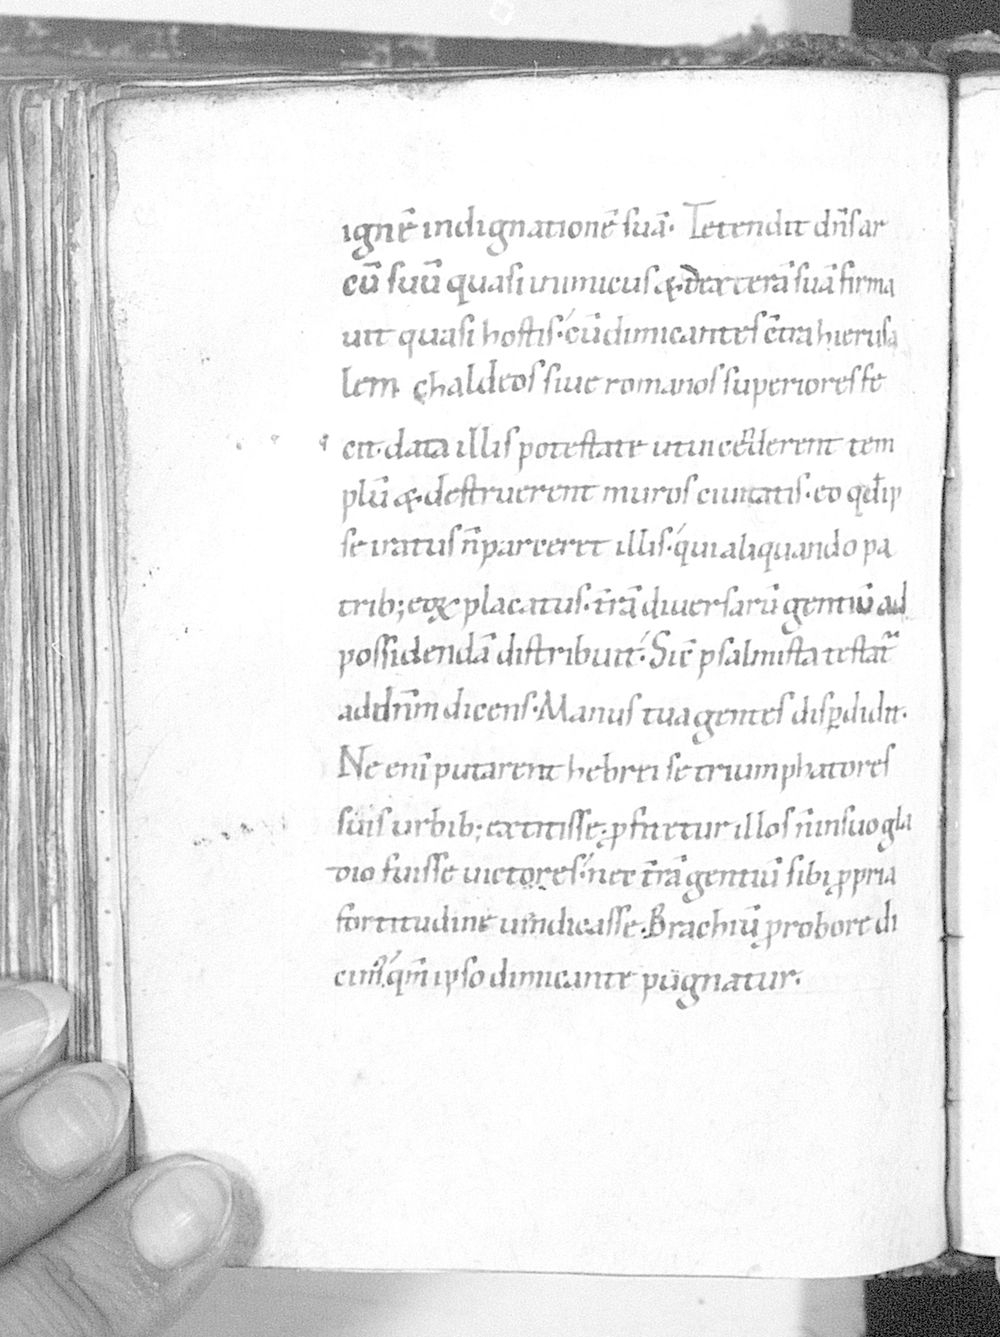 ignē indignationē suā. Tetendit dn̄s ar
cū suū quasi inimicus & dexterā suā firma
uit quasi hostis. cū dimicantes c̄tra hierusa
lem chaldeos siue romanos superiores fe
cit. data illis potestate ut incenderent tem
plū & destruerent muros ciuitatis. eo qd̄ ip
se iratus n̄ parceret illis. qui aliquando pa
trib; eoꝝ placatus. t̄rā diuersarū gentiū ad
possidendā distribuit. Sic̄ psalmista testat᷑
ad dn̄m dicens. Manus tua gentes disꝑdidit.
Ne eni putarent hebrei se triumphatores
suis urbib; extitisse. ꝓfitetur illos n̄ in suo gla
dio fuisse uictores. nec t̄rā gentiū sibi ꝓpria
fortitudine uindicasse. Brachiū pro robore di
cim᷒. qm̄ ipso dimicante pugnatur.